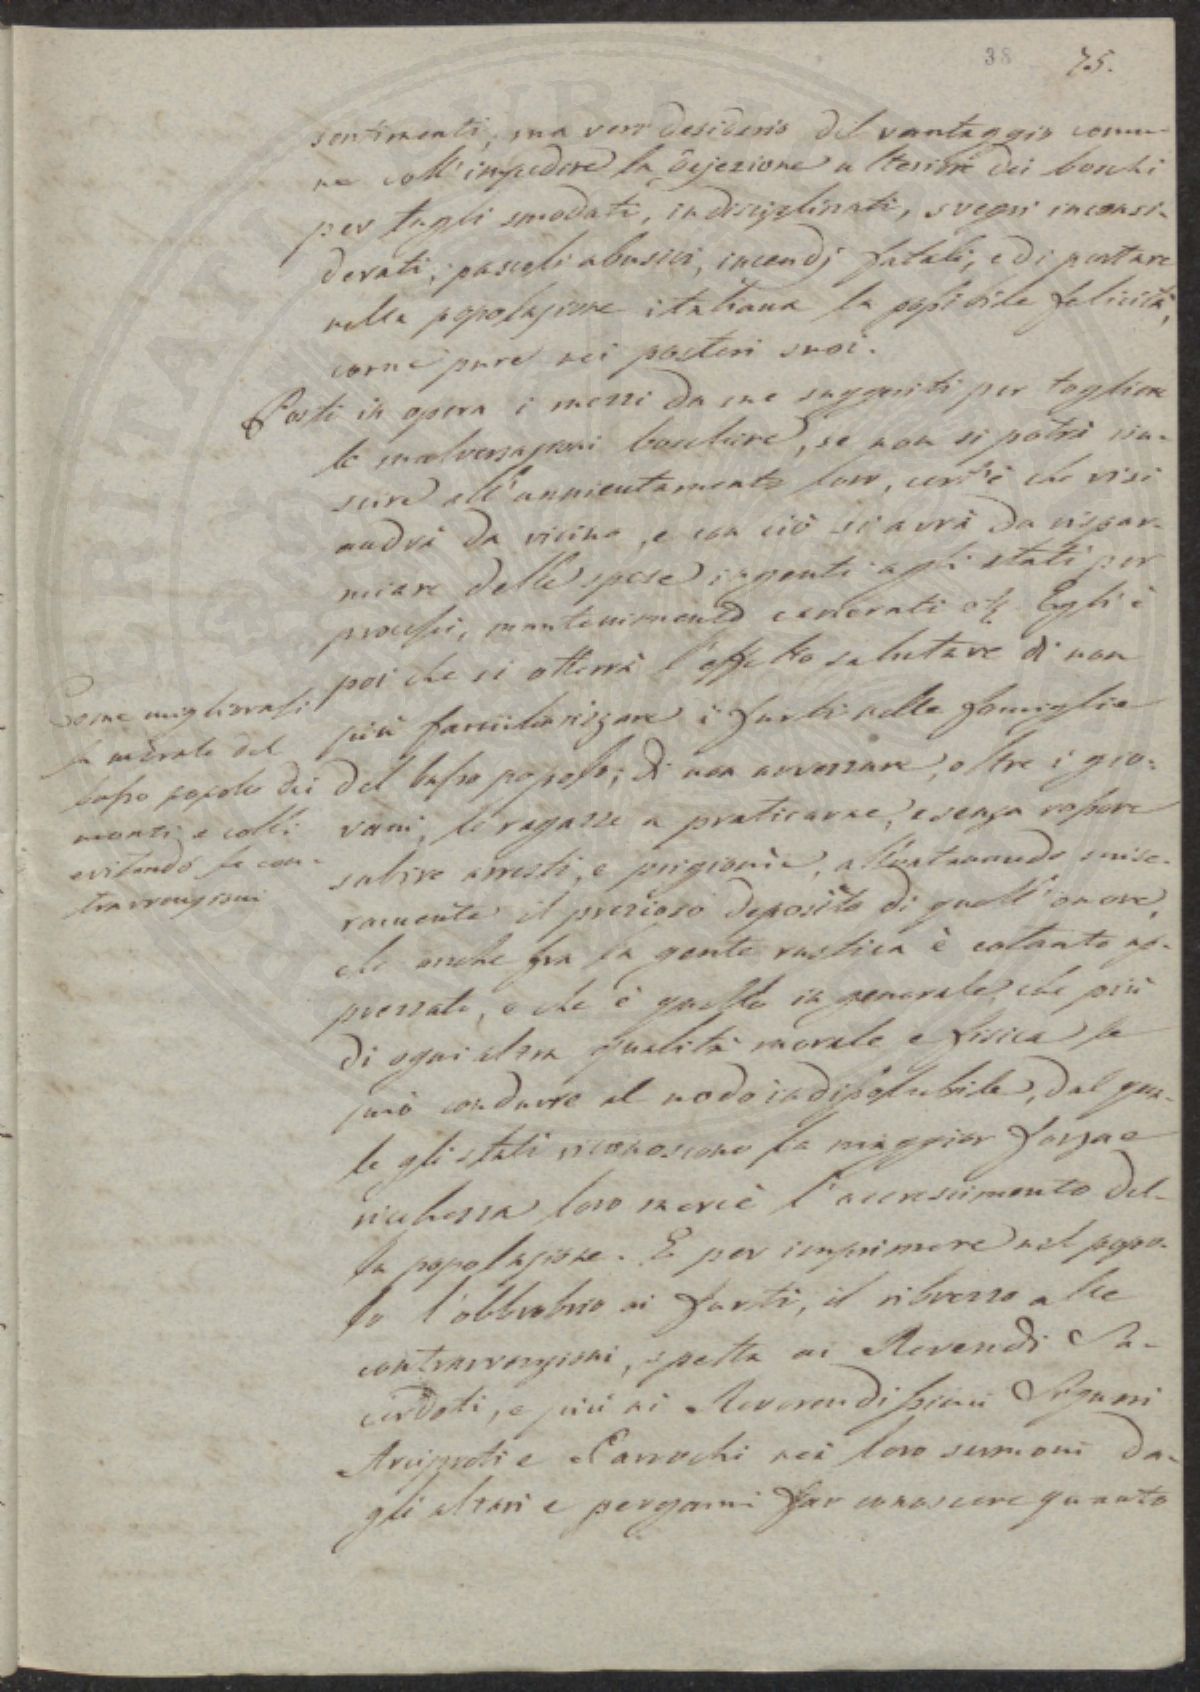 38 75.
sentimenti, ma vero desiderio del vantaggio comu-
ne coll'impedire la dejezione ulteriore dei boschi
per tagli smodati, indisciplinati, svegri inconsi-
derati, pascoli abusivi, incendj fatali, e di portare
nella popolazione italiana la possibile felicità,
come pure nei posteri suoi.
Posti in opera i mezzi da me suggeriti per togliere
le malversazioni boschive, se non si potrà riu-
scire all'annientamento loro, cert'è che vi si
andrà da vicino, e con ciò si avrà da rispar-
miare delle spese ingenti agli stati per
processi, mantenimento carcerati &c. Egli è
poi che si otterrà l'effetto salutare di non
più familiarizzare i furti nelle famiglie
del basso popolo; di non avvezzare, oltre i gio-
vani, le ragazze a praticarne, e senza rossore
subire arresti, e prigionie, allontanando mise-
ramente il prezioso deposito di quell'onore,
che anche fra la gente rustica è cotanto ap-
prezzato, e che è quello in generale che più
di ogni altra qualità morale e fisica le
può condurre al nodo indissolubile, dal qua-
le gli stati riconoscono la maggior forza e
ricchezza loro mercè l'accrescimento del-
la popolazione. E per imprimere nel popo-
lo l'obbrobrio ai furti, il ribrezzo alle
contravvenzioni, spetta ai Reverendi Sa-
cerdoti, e più ai Reverendissimi Signori
Arcipreti e Parrochi nei loro sermoni da-
gli altari e pergami far conoscere quanto
Come migliorasi
la morale del
basso popolo dei
monti e colli
evitando le con-
travvenzioni